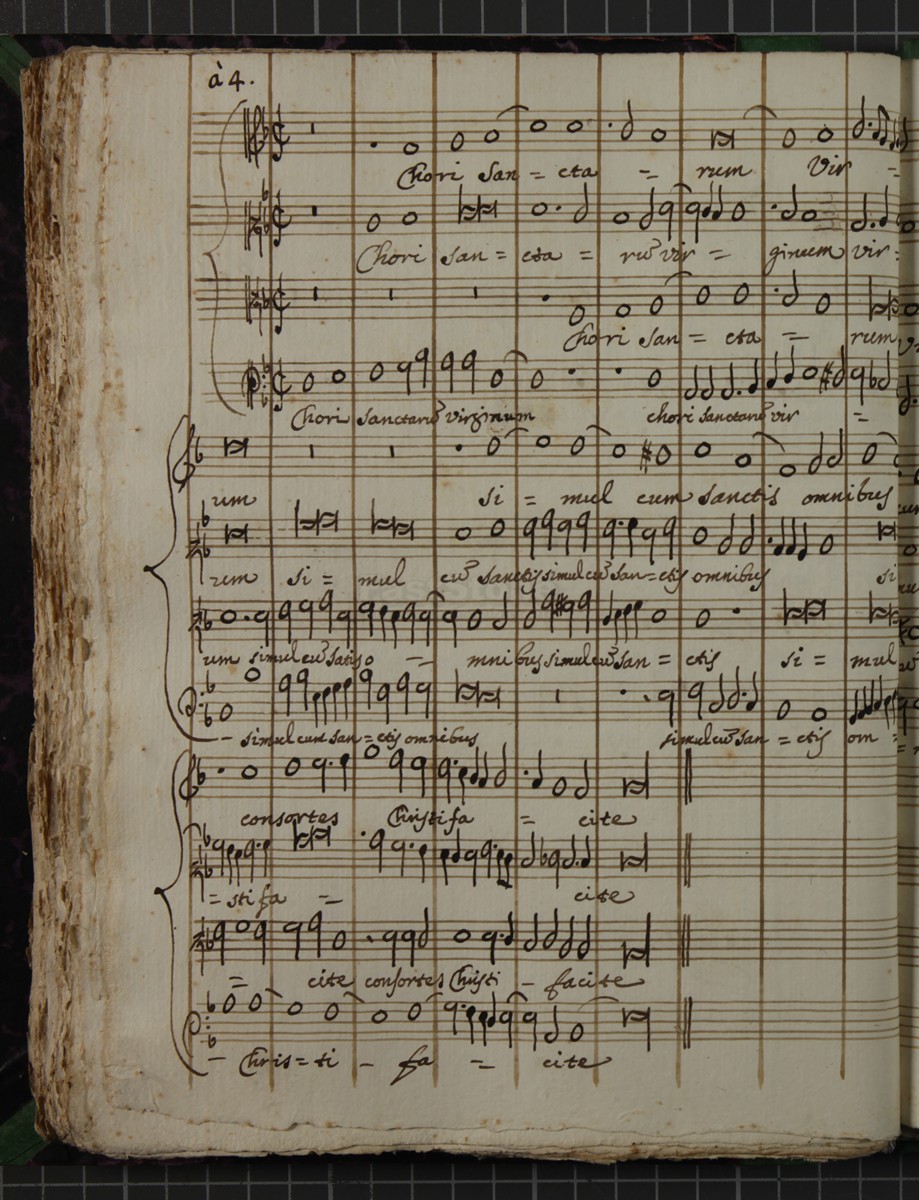 à 4.
Chori San = cta = rum Vir =
Chori San = cta = rũ vir = ginum vir =
Chori San = cta = rum
Chori Sanctarũ virginum chori Sanctarũ vir =
rum Si = mul cum Sanctis omnibus
rum Si = mul cũ Sanctis simul cũ San = ctis omnibus Si
um simul cũ omnibus simul cũ San = ctis Si = mul
simul cum San = ctis omnibus simul cũ San = ctis om =
consortes Christi fa = cite
= sti fa = cite
= cite consortes Christi - facite
- Chris = ti - fa = cite